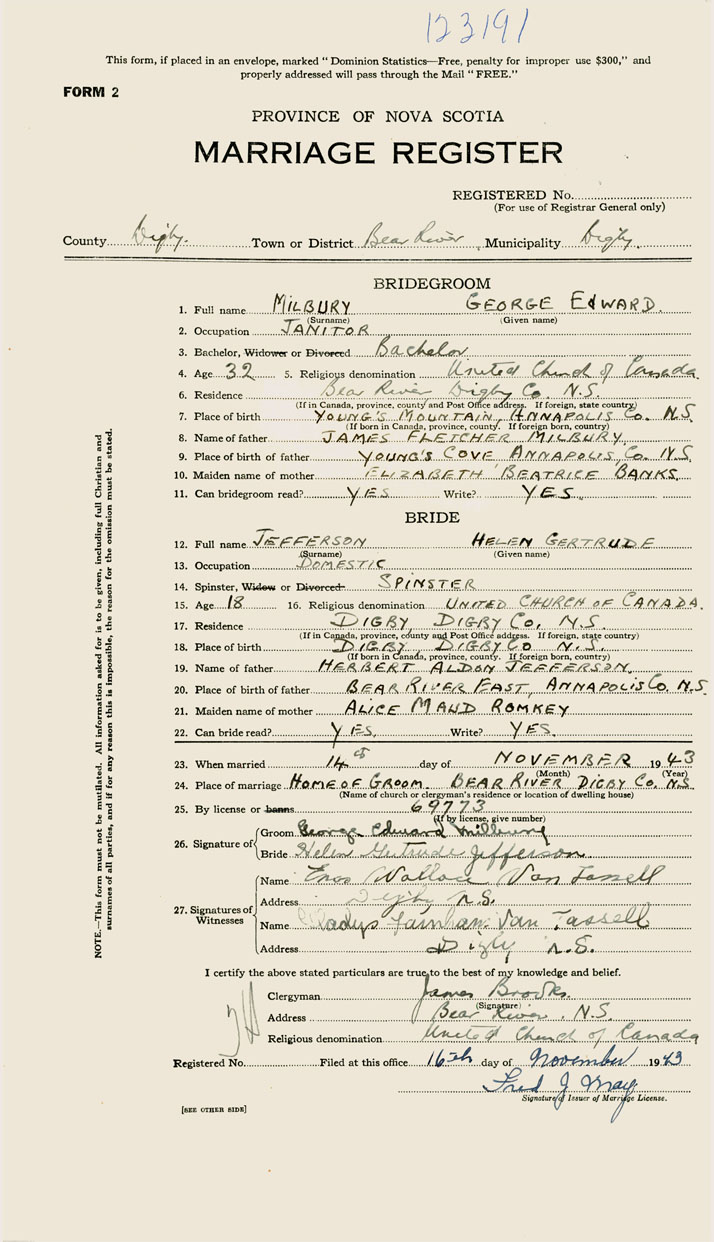 123191
This form, if placed in an envelope, marked "Dominion Statistics—Free, penalty for improper use $300," and
properly addressed will pass through the Mail "FREE."
FORM 2
PROVINCE OF NOVA SCOTIA
MARRIAGE REGISTER
REGISTERED No.
(For use of Registrar General only)
County Digby. Town or District Bear River, Municipality Digby.
BRIDEGROOM
1. Full name MILBURY GEORGE EDWARD.
(Surname) (Given name)
2. Occupation JANITOR
3. Bachelor, Widower or Divorced Bachelor
4. Age 32 5. Religious denomination United Church of Canada
6. Residence Bear River Digby Co. N.S.
(If in Canada, province, county and Post Office address. If foreign, state country)
7. Place of birth YOUNG'S MOUNTAIN, ANNAPOLIS Co. N.S.
(If born in Canada, province, county. If foreign born, country)
8. Name of father JAMES FLETCHER MILBURY.
9. Place of birth of father YOUNG'S COVE ANNAPOLIS Co. N.S.
10. Maiden name of mother ELIZABETH BEATRICE BANKS.
11. Can bridegroom read? YES Write? YES.
BRIDE
12. Full name JEFFERSON HELEN GERTRUDE
(Surname) (Given name)
13. Occupation DOMESTIC
14. Spinster, Widow or Divorced SPINSTER
15. Age 18 16. Religious denomination UNITED CHURCH OF CANADA.
17. Residence DIGBY, DIGBY Co. N.S.
(If in Canada, province, county and Post Office address. If foreign, state country)
18. Place of birth DIGBY, DIGBY Co N.S.
(If born in Canada, province, county. If foreign born, country)
19. Name of father HERBERT ALDON JEFFERSON.
20. Place of birth of father BEAR RIVER EAST, ANNAPOLIS Co. N.S.
21. Maiden name of mother ALICE MAUD ROMKEY
22. Can bride read? YES. Write? YES.
23. When married 14 day of NOVEMBER 1943
(Month) (Year)
24. Place of marriage HOME OF GROOM. BEAR RIVER DIGBY Co. N.S.
(Name of church or clergyman's residence or location of dwelling house)
25. By license or banns 69773
(If by license, give number)
26. Signature of Groom George Edward Milbury
Bride Helen Gertrude Jefferson
27. Signatures of Witnesses
Name Enos Wallace Van Tassell
Address Digby N.S.
Name Gladys Farnham Van Tassell
Address Digby N.S.
I certify the above stated particulars are true to the best of my knowledge and belief.
Clergyman James Brooks.
(Signature)
Address Bear River, N.S.
Religious denomination United Church of Canada
Registered No. Filed at this office 16th day of November 1943
Fred J May
Signature of Issuer of Marriage License.
[SEE OTHER SIDE]
NOTE.—This form must not be mutilated. All information asked for is to be given, including full Christian and
surnames of all parties, and if for any reason this is impossible, the reason for the omission must be stated.